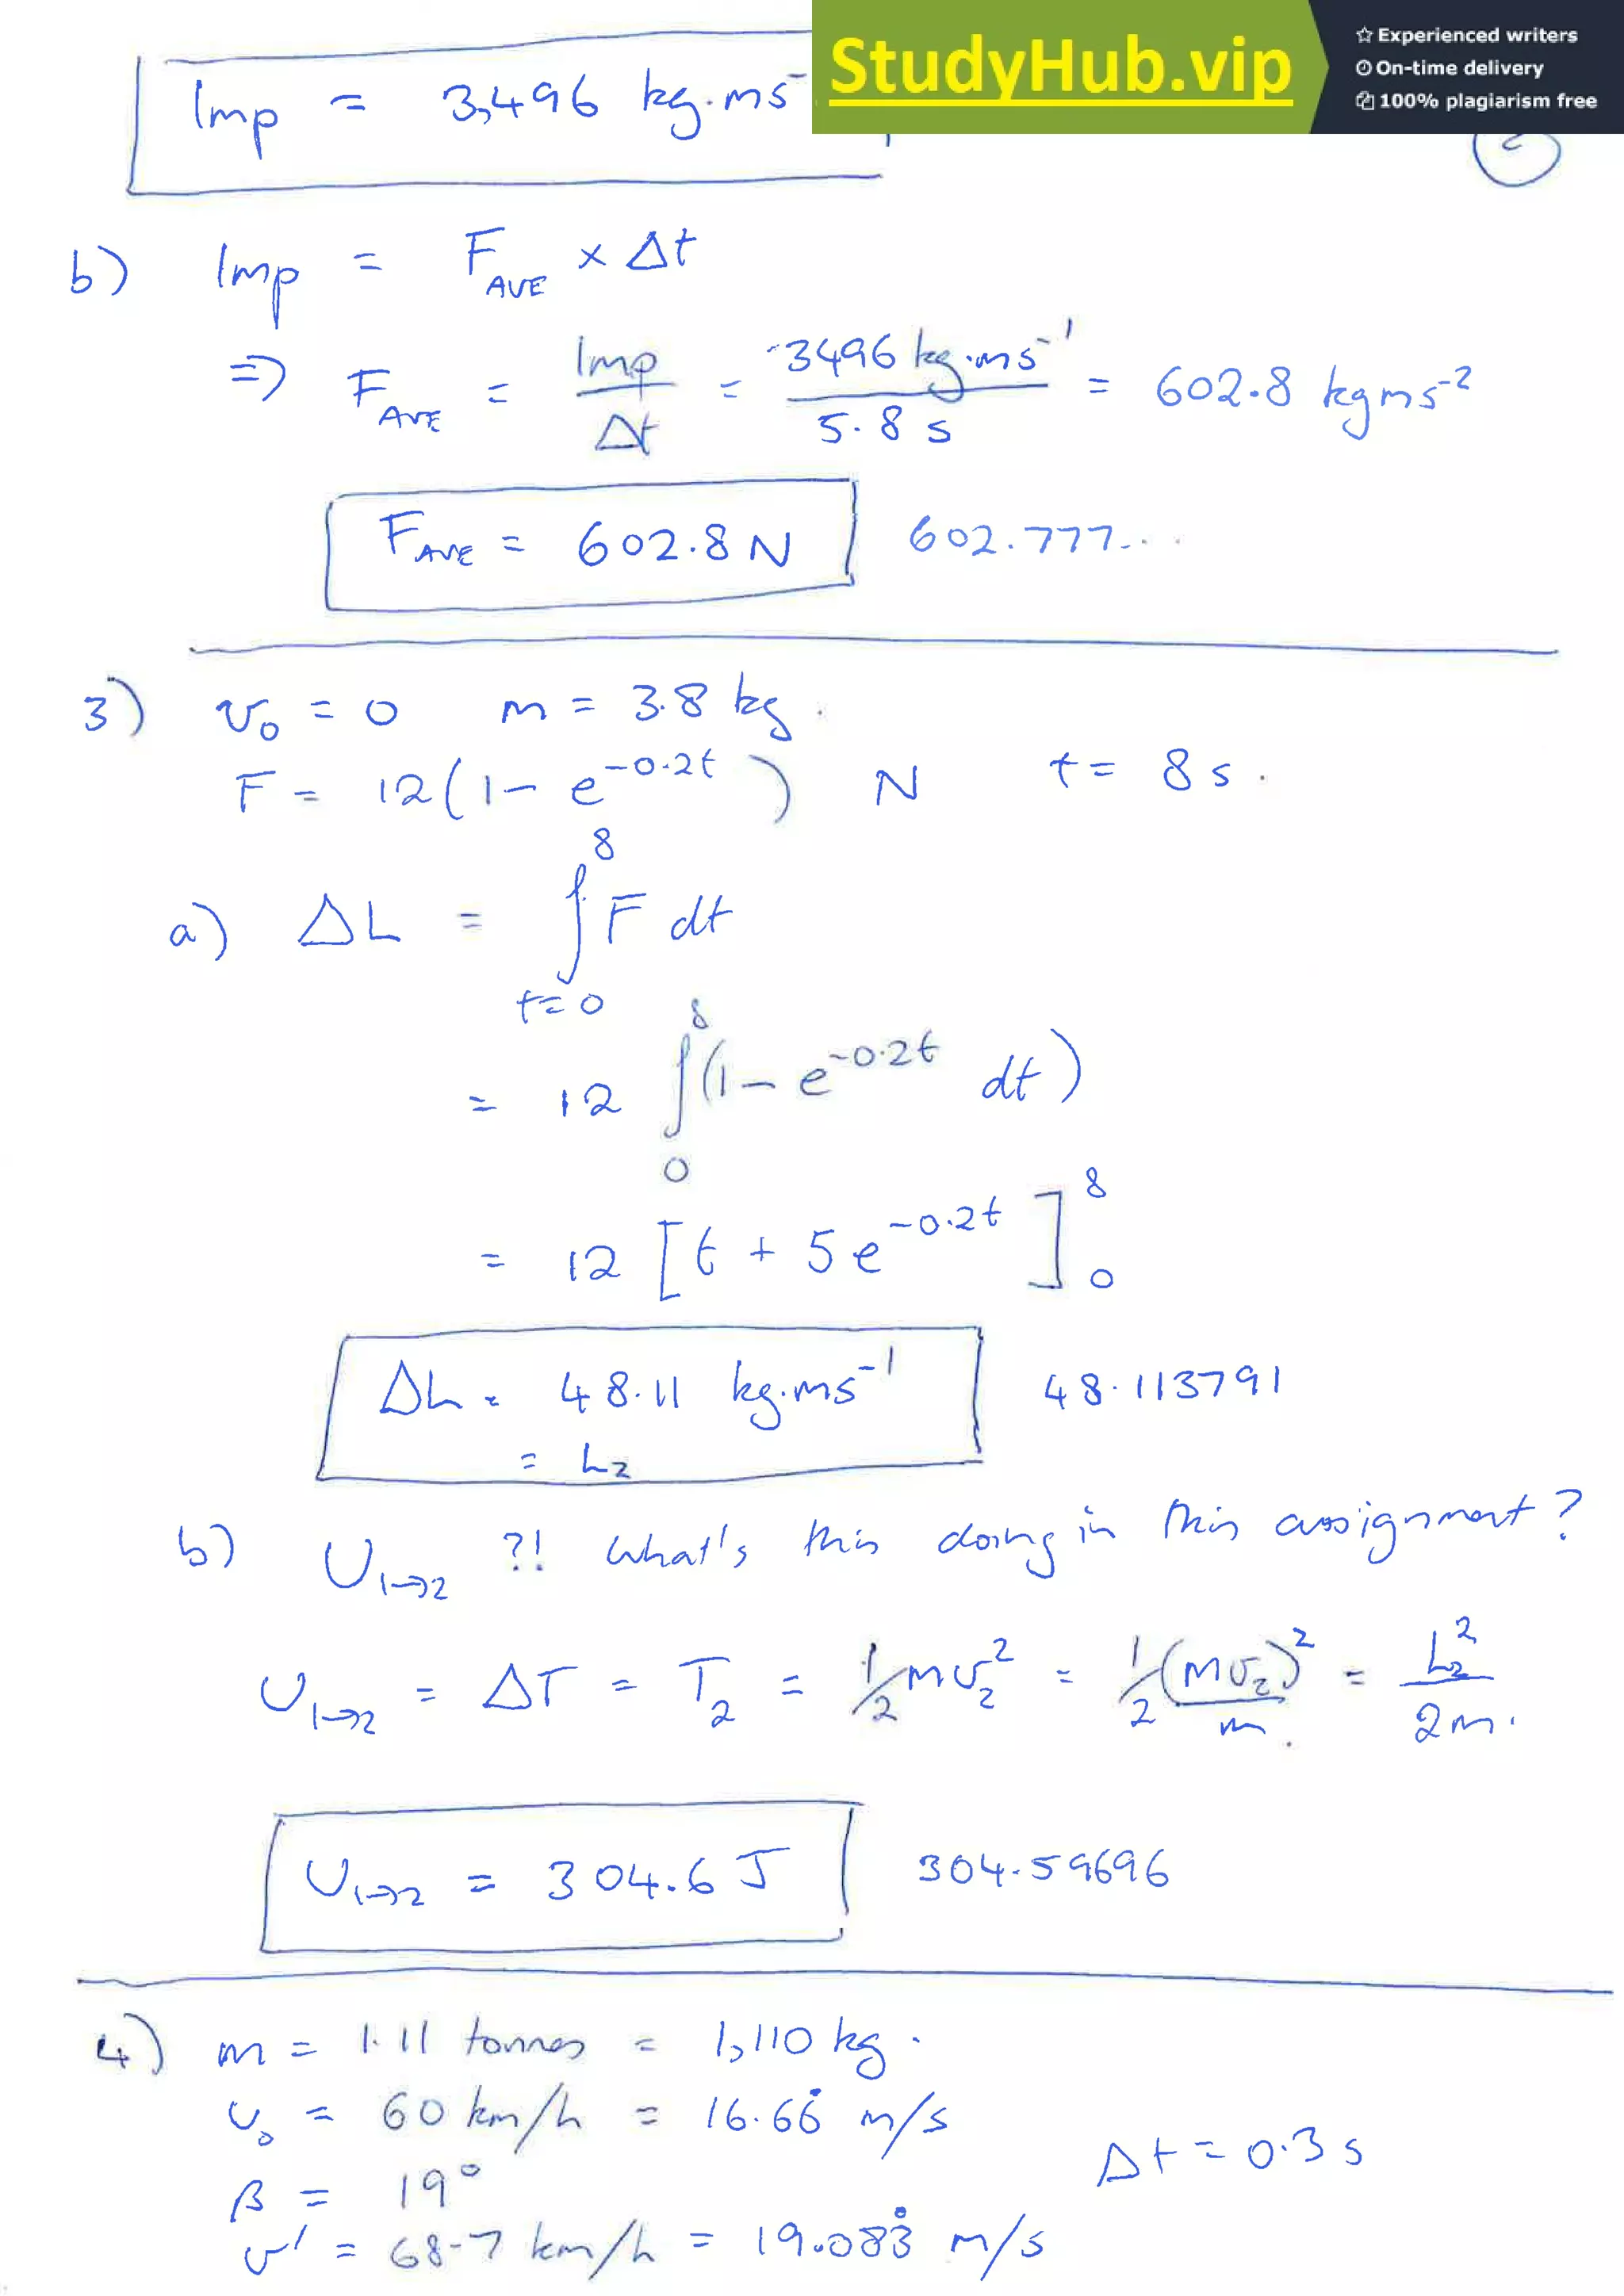 StudyHub.vip
Experienced writers
On-time delivery
100% plagiarism free
Imp = 3,496 kg.ms⁻
2
b) Imp = F_AVE × Δt
⇒ F_AVE = Imp/Δt = 3496 kg.ms⁻¹ / 5.8 s = 602.8 kgms⁻²
F_AVE = 602.8 N 602.777...
3) v₀ = 0 m = 3.8 kg.
F = 12(1 - e^-0.2t) N t = 8 s.
a) ΔL = ∫_{t=0}^{8} F dt
= 12 ∫_0^8 (1 - e^-0.2t dt)
= 12 [t + 5e^-0.2t]_0^8
ΔL = 48.11 kg.ms⁻¹ 48.113791
= L₂
b) U₁→₂ ?! What's this doing in this assignment?
U₁→₂ = ΔT = T₂ = ½mv₂² = ½(mv₂)²/m. = L₂²/2m.
U₁→₂ = 304.6 J 304.59696
4) m = 1.11 tonnes = 1,110 kg.
v₀ = 60 km/h = 16.66̇ m/s
Δt = 0.3 s
β = 19°
v' = 68.7 km/h = 19.083̇ m/s